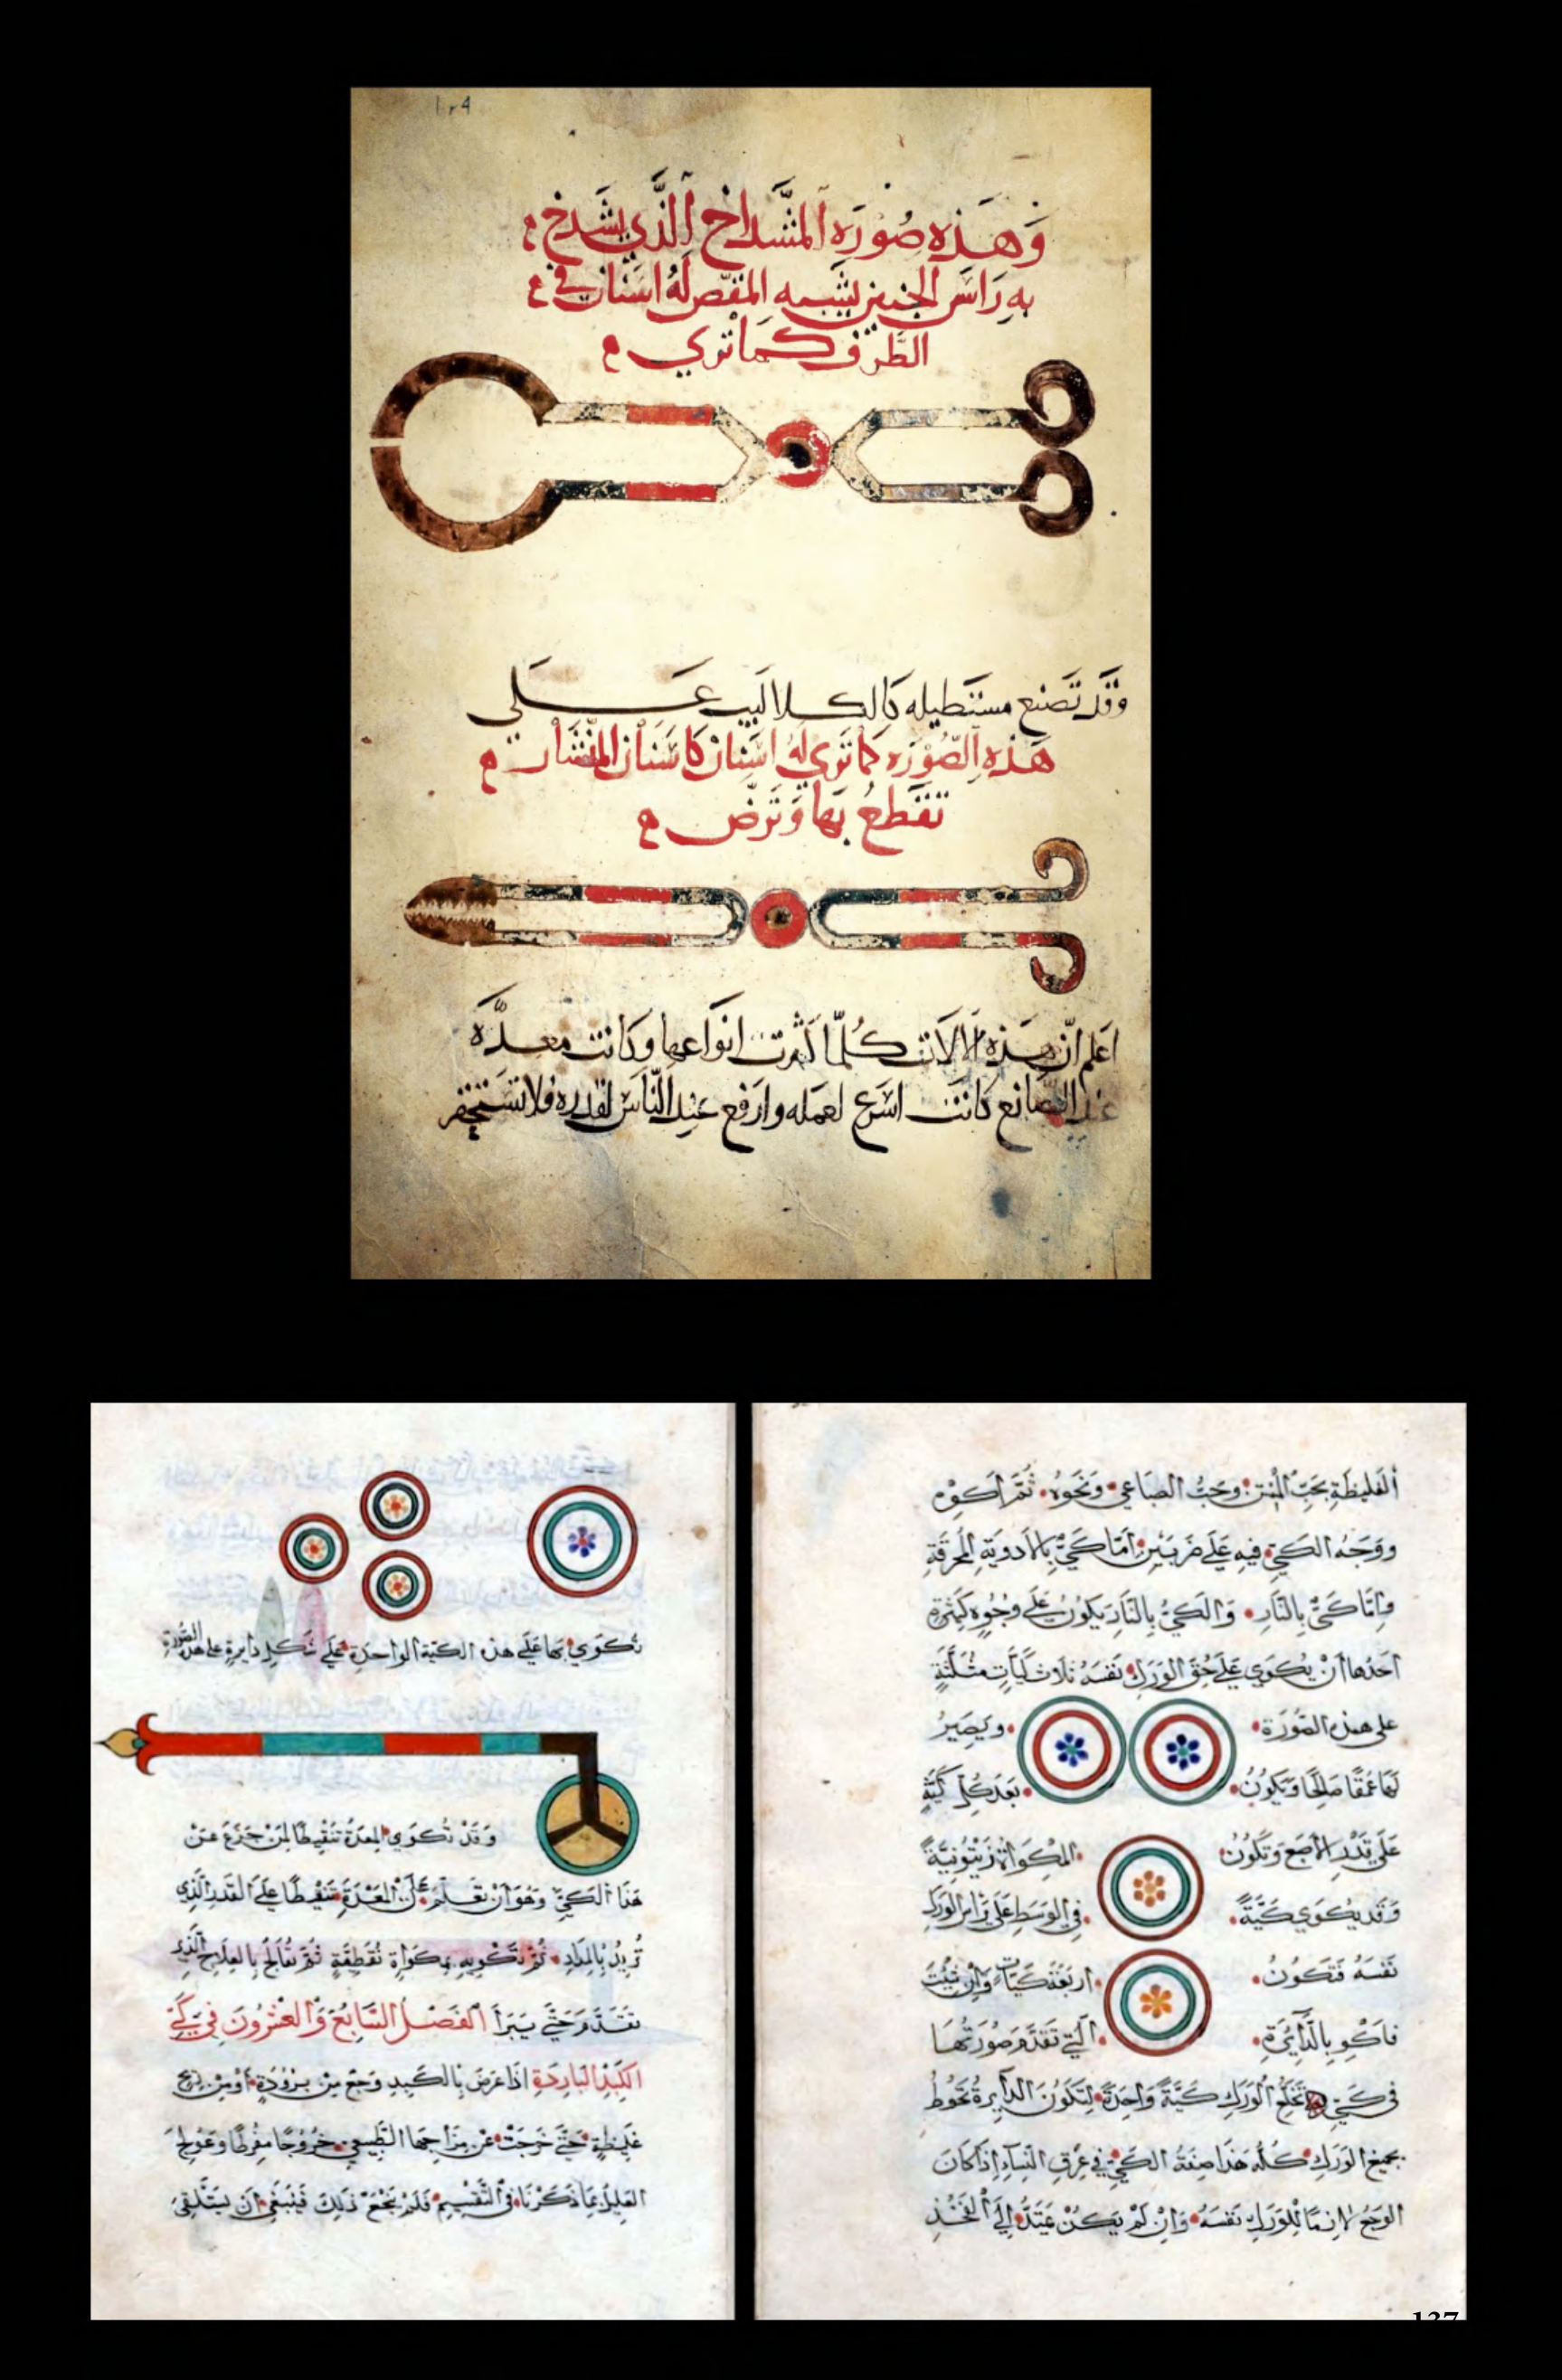 وَهَذِه صُوْرَه المشداخ الَّذي يشدَخ
به رَاسَ الجنين يشبه المقَص لَهُ اسنَان في
الطَّرَف كمَا تَرَي
وَقَد تَصنع مستَطيله كَالكلاليب عَلَي
هَذه الصُّوْرَه كمَا تَرَي لَهُ اسَنان كَاسَنَان المنْشَار
تقَطعُ بهَا وَتَرَضّ
اعَلم انّ هَذه الالاَت كُلّما كَثُرت انوَاعها وكَانت معدَّه
عند الصَّانع كَانَت اسَرَع لعَمله وارَفع عنِد النّاسَ لقَدره فلا تسَتحقر
تُكوَي بهَا عَلَي هذه الكيّة الواحدَة عَلَي شَكلِ دَايرةٍ على هذه الصُّورَة
وَقَدْ تُكوَي المعدَةُ تَنْقِيطًا لمَنْ جَزَعَ مِنْ
هَذَا الكَيّ وَهُوَ اَنْ تعَلّم عَلَي المعْدَة تنقيطًا عَلَي القَدر الَّذي
تُريدُ بِالمدَادِ ثُمَّ تَكْويه بمكوَاةِ نُقطَةٍ ثُمَّ تعَالَج بالعِلَاج الَّذي
تَقَدَّمَ حَتَّي يَبَرا الفَصْلُ السَّابِعُ وَالعِشْرُونَ فِي كَيّ
الكَبِدِ البَارِدَةِ اذَا عَرَضَ بِالكَبِدِ وَجَع مِنْ بُرُوْدَةٍ اَوْ مِنْ رِيحٍ
غليظةٍ حَتَّي خَرَجَتْ عَنْ مِزَاجِهَا الطَّبِيعي خُرُوجًا مفْرِطًا وَعُولِجَ
العَلِيلُ بمَا ذَكَرْنَا فِي التَّقْسِيمِ فَلَمْ يَنْجَعْ ذَلِكَ فَيَنْبَغِي اَنْ يَسْتَلْقِيَ
الغَلِيظَةِ بحَبّ المُنْتِن وحَبّ وَنَحوِهِ ثُمَّ اكوِهِ
ووَجْهُ الكَيّ فِيهِ عَلَي ضَرْبَيْنِ اَمَّا كَيٌّ بِالاَدويَةِ المُحْرقَةِ
وَامَّا كَيٌّ بِالنَّارِ وَالكَيُّ بِالنَّارِ يَكُونُ عَلَي وُجُوهٍ كَثِيرَةٍ
اَحَدُهَا اَنْ يُكوَي عَلَي حُقّ الوَرِكِ نَفْسَهُ ثَلَاثَ كَيَّاتٍ مثَلَّثَةٍ
عَلَي هذه الصُّورَةِ ويَصِيرُ
لهَا عُمْقًا صَالِحًا وَيَكُونُ بُعْدُ كُلّ كَيَّةٍ
عَلَي قَدْرِ الاصْبَعِ وَتَكُونُ المكوَاةُ زَيْتُونِيَّةً
وَقَد يُكوَي كَيَّةً فِي الوَسَطِ عَلَي رَاسِ الوَرِكِ
نَفْسَهُ فَتَكُونُ اَرْبَعَ كَيَّاتٍ وَاِنْ شِئْتَ
فاكْوِ بِالدَّائِرَةِ الَّتِي تَقَدَّمَ صُورَتُهَا
فِي كَيّ تَخَلُّعِ الوَرِكِ كَيَّةً وَاحِدَةً لِتَكُونَ الدَّايِرَةُ تَحُوطُ
بِجَمِيعِ الوَرِكِ كُلّه هَذَا صِفَةُ الكَيّ فِي عِرْقِ النّسَاءِ اِذَا كَانَ
الوَجَعُ لَازِمًا لِلوَرِكِ نَفْسَهُ وَاِنْ لَمْ يَكُنْ يَمْتَدُّ اِلَي الفَخْذِ
137